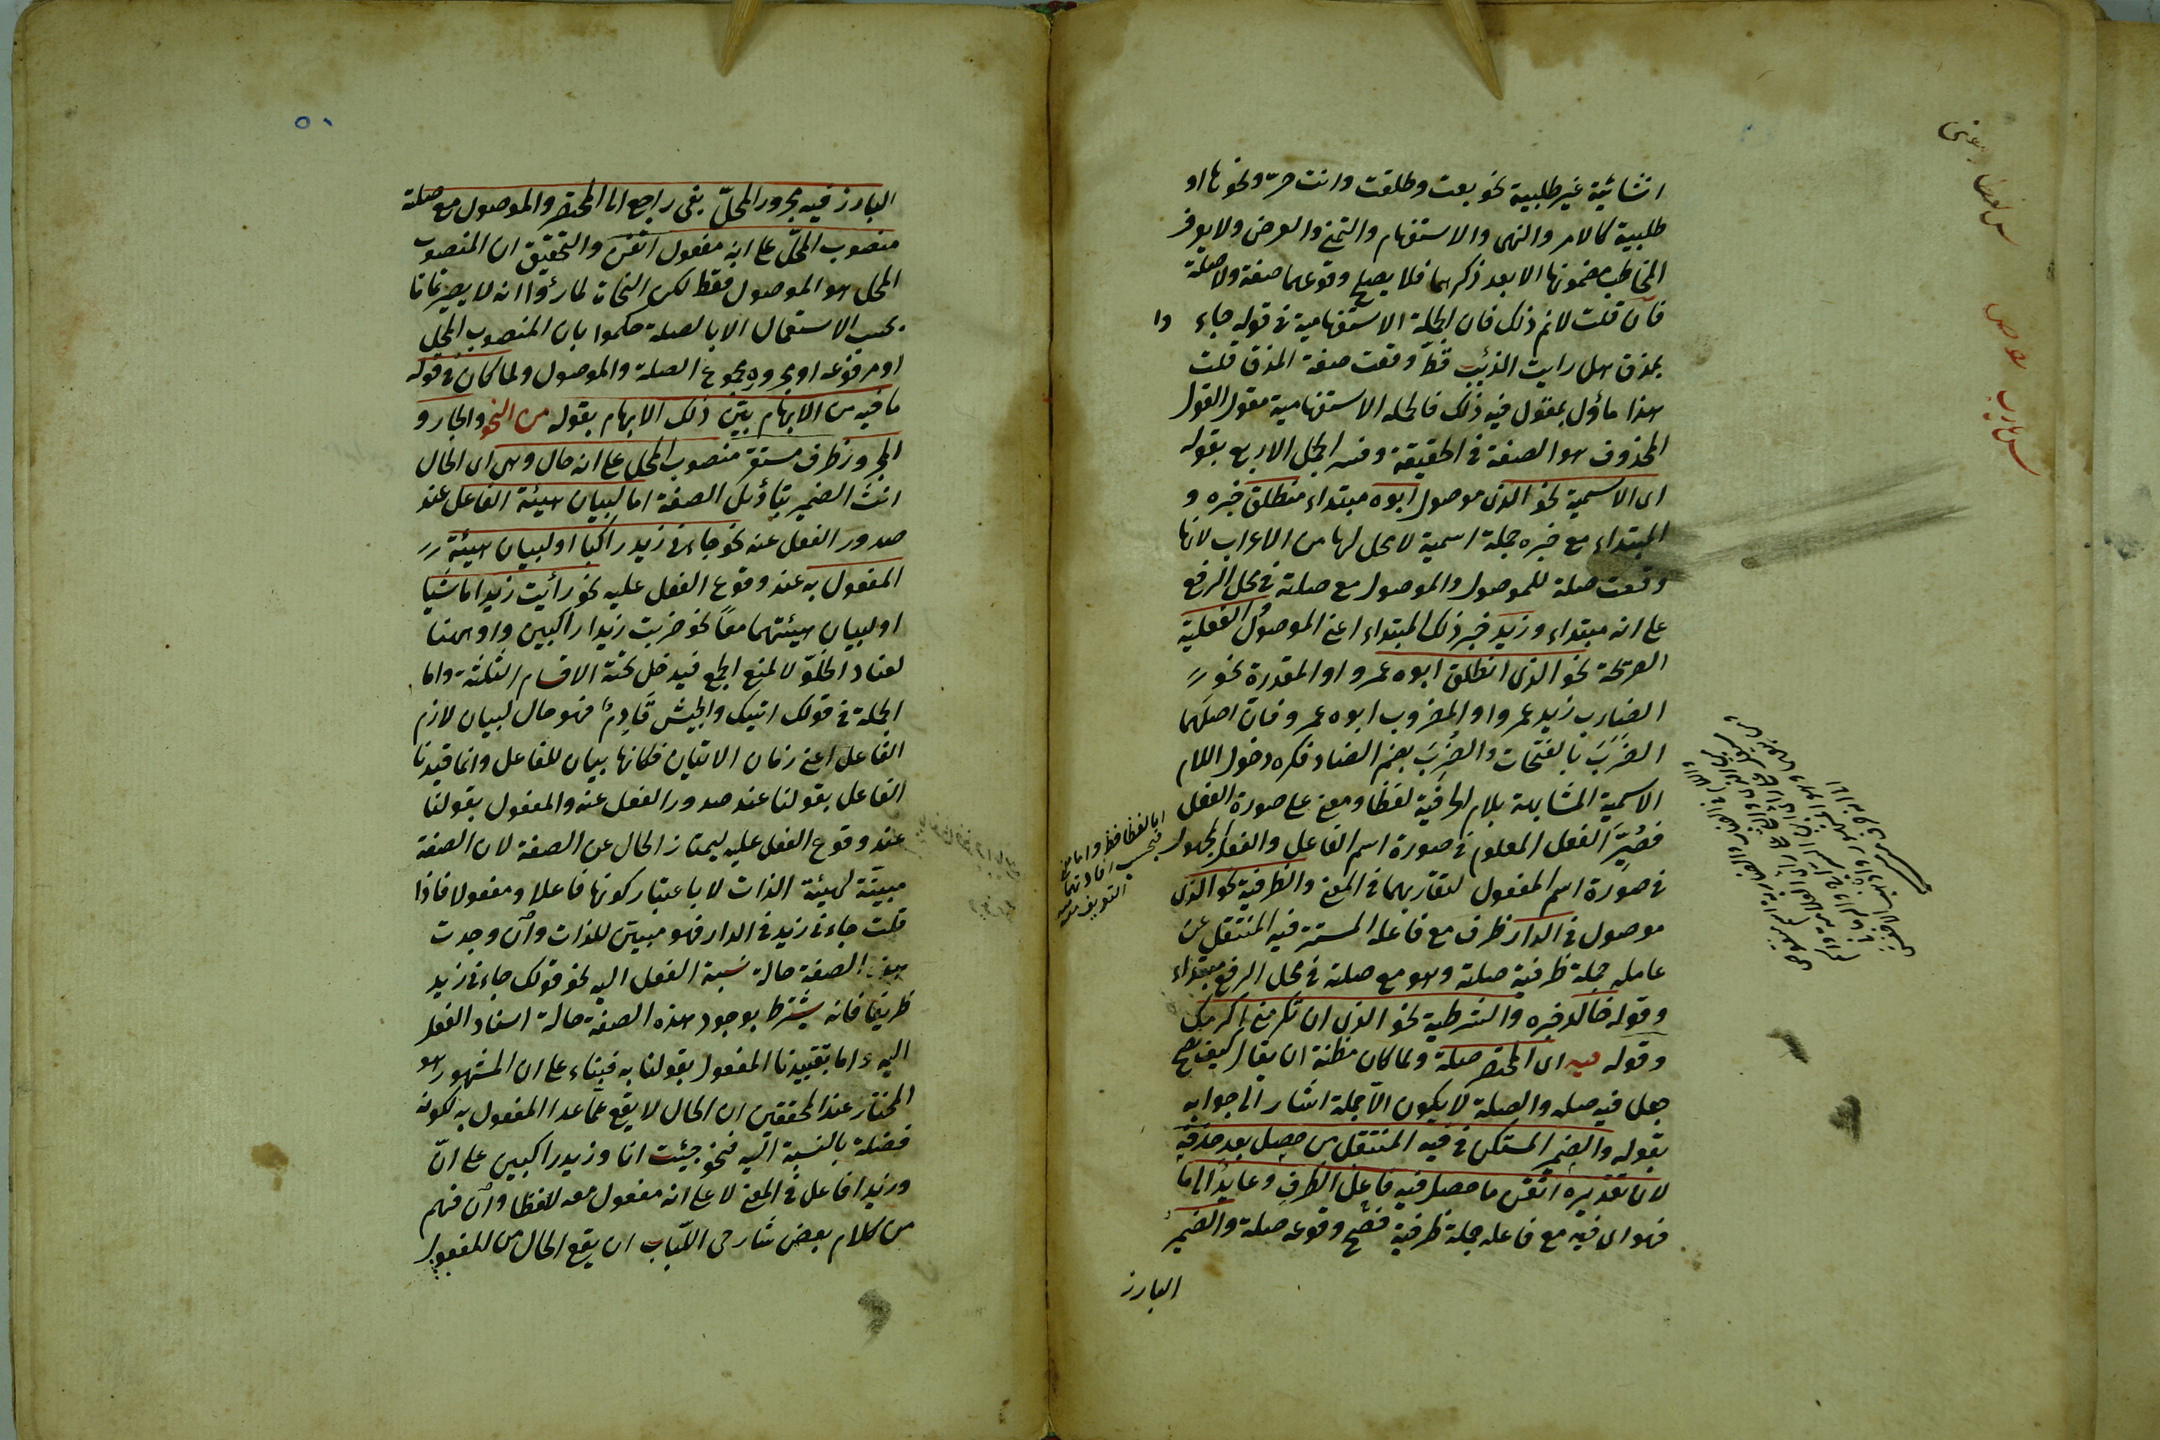 انشائية غير طلبية نحو بعت وطلقت وانت حرّ ونحوها او
طلبية كالامر والنهى والاستفهام والتمنى والعرض ولا يعرف
المخاطب مضمونها الا بعد ذكرهما فلا يصح وقوعهما صفة ولا صلة
فان قلت لانم ذلك فان الجملة الاستفهامية فى قوله جاء وا
بمذق هل رايت الذئب قطّ وقعت صفة المذق قلت
هذا ماؤل بمقول فيه ذلك فالجملة الاستفهامية مقول القول
المحذوف هو الصفة فى الحقيقة وفسر الجمل الاربع بقوله
اى الاسمية نحو الذى موصول ابوه مبتداء منطلق خبره و
المبتداء مع خبره جملة اسمية لا محل لها من الاعراب لانها
وقعت صلة للموصول والموصول مع صلته فى محل الرفع
على انه مبتداء وزيد خبر ذلك المبتداء اعنى الموصول الفعلية
الصريحة نحو الذى انطلق ابوه عمرو او المقدرة نحو
الضارب زيد عمرو او المضروب ابوه عمرو فان اصلهما
الضَرَبَ بالفتحات والضُرِبَ بضم الضاد فكره دخول اللام
الاسمية المشابهة بلام الحرفية لفظا ومعنى على صورة الفعل
فصُيّر الفعل المعلوم فى صورة اسم الفاعل والفعل المجهول
فى صورة اسم المفعول لتقاربهما فى المعنى والظرفية نحو الذى
موصول فى الدار ظرف مع فاعله المستتر فيه المنتقل عن
عامله جملة ظرفية صلة وهو مع صلته فى محل الرفع مبتداء
وقوله خالد خبره والشرطية نحو الذى ان تكرمنى اكرمك
وقوله فيه اى المختصر صلة ولما كان مظنة ان يقال كيف يصح
جعل فيه صلة والصلة لا يكون الّا جملة اشار الى جوابه
بقوله والضمير المستكن فى فيه المنتقل من حصل بعد حذفه
لان تقديره اتقن ما حصل فيه فاعل الظرف وعايد الى ما
فهو اى فيه مع فاعله جملة ظرفية فصح وقوعه صلة والضمير
البارز
اما لفظا فظ واما معنى
فبحسب افادتهما
التعريف منه
٥٠
البارز فيه مجرور المحلّ بفى راجع الى المختصر والموصول مع صلته
منصوب المحلّ على انه مفعول اتقن والتحقيق ان المنصوب
المحل هو الموصول فقط لكن النحاة لما رؤا انه لا يصير تماما
بحسب الاستعمال الا بالصلة حكموا بان المنصوب المحل
او مرفوعه او مجروره مجموع الصلة والموصول ولما كان فى قوله
ما فيه من الابهام بيّن ذلك الابهام بقوله من النحو والجار و
المجرور ظرف مستقر منصوب المحل على انه حال وهى اى الحال
انث الضمير بتأويل الصفة اما لبيان هيئة الفاعل عند
صدور الفعل عنه نحو جاءنى زيد راكبا او لبيان هيئة
المفعول به عند وقوع الفعل عليه نحو رأيت زيدا ماشيا
او لبيان هيئتهما معًا نحو ضربت زيدا راكبين واو ههنا
لعناد الخلوّ لا لمنع الجمع فيدخل تحته الاقسام الثلثة واما
الجملة فى قولك اتيتك والجيش قادم فهو حال لبيان لازم
الفاعل اعنى زمان الاتيان فكانها بيان للفاعل وانما قيدنا
الفاعل بقولنا عند صدور الفعل عنه والمفعول بقولنا
عند وقوع الفعل عليه ليمتاز الحال عن الصفة لان الصفة
مبيّنة لهيئة الذات لا باعتبار كونها فاعلا ومفعولا فاذا
قلت جاءنى زيد فى الدار فهو مبيّن للذات وان وجدت
هذه الصفة حالة نسبة الفعل اليه نحو قولك جاءنى زيد
ظريفا فانه يشترط بوجود هذه الصفة حالة اسناد الفعل
اليه واما تقييدنا المفعول بقولنا به فبناء على ان المشهور هو
المختار عند المحققين ان الحال لا يقع عمّا عدا المفعول به لكونه
فضلة بالنسبة اليه فنحو جيئت انا وزيد راكبين على انّ
وزيدا فاعل فى المعنى لا على انه مفعول معه لفظا وان فهم
من كلام بعض شارحى اللباب ان يقع الحال من المفعول